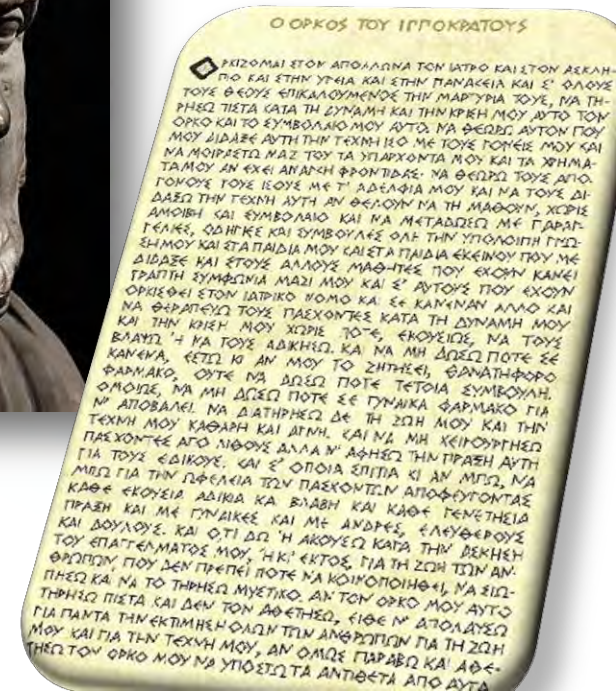 Ο ΟΡΚΟΣ ΤΟΥ ΙΠΠΟΚΡΑΤΟΥΣ
ΟΡΚΙΖΟΜΑΙ ΣΤΟΝ ΑΠΟΛΛΩΝΑ ΤΟΝ ΙΑΤΡΟ ΚΑΙ ΣΤΟΝ ΑΣΚΛΗ-
ΠΙΟ ΚΑΙ ΣΤΗΝ ΥΓΕΙΑ ΚΑΙ ΣΤΗΝ ΠΑΝΑΚΕΙΑ ΚΑΙ Σ' ΟΛΟΥΣ
ΤΟΥΣ ΘΕΟΥΣ ΕΠΙΚΑΛΟΥΜΕΝΟΣ ΤΗΝ ΜΑΡΤΥΡΙΑ ΤΟΥΣ, ΝΑ ΤΗ-
ΡΗΣΩ ΠΙΣΤΑ ΚΑΤΑ ΤΗ ΔΥΝΑΜΗ ΚΑΙ ΤΗΝ ΚΡΙΣΗ ΜΟΥ ΑΥΤΟ ΤΟΝ
ΟΡΚΟ ΚΑΙ ΤΟ ΣΥΜΒΟΛΑΙΟ ΜΟΥ ΑΥΤΟ. ΝΑ ΘΕΩΡΩ ΑΥΤΟΝ ΠΟΥ
ΜΟΥ ΔΙΔΑΞΕ ΑΥΤΗ ΤΗΝ ΤΕΧΝΗ ΙΣΟ ΜΕ ΤΟΥΣ ΓΟΝΕΙΣ ΜΟΥ ΚΑΙ
ΝΑ ΜΟΙΡΑΣΤΩ ΜΑΖΙ ΤΟΥ ΤΑ ΥΠΑΡΧΟΝΤΑ ΜΟΥ ΚΑΙ ΤΑ ΧΡΗΜΑ-
ΤΑ ΜΟΥ ΑΝ ΕΧΕΙ ΑΝΑΓΚΗ ΦΡΟΝΤΙΔΑΣ. ΝΑ ΘΕΩΡΩ ΤΟΥΣ ΑΠΟ-
ΓΟΝΟΥΣ ΤΟΥΣ ΙΣΟΥΣ ΜΕ Τ' ΑΔΕΛΦΙΑ ΜΟΥ ΚΑΙ ΝΑ ΤΟΥΣ ΔΙ-
ΔΑΞΩ ΤΗΝ ΤΕΧΝΗ ΑΥΤΗ ΑΝ ΘΕΛΟΥΝ ΝΑ ΤΗ ΜΑΘΟΥΝ, ΧΩΡΙΣ
ΑΜΟΙΒΗ ΚΑΙ ΣΥΜΒΟΛΑΙΟ ΚΑΙ ΝΑ ΜΕΤΑΔΩΣΩ ΜΕ ΠΑΡΑΓ-
ΓΕΛΙΕΣ, ΟΔΗΓΙΕΣ ΚΑΙ ΣΥΜΒΟΥΛΕΣ ΟΛΗ ΤΗΝ ΥΠΟΛΟΙΠΗ ΓΝΩ-
ΣΗ ΜΟΥ ΚΑΙ ΣΤΑ ΠΑΙΔΙΑ ΜΟΥ ΚΑΙ ΣΤΑ ΠΑΙΔΙΑ ΕΚΕΙΝΟΥ ΠΟΥ ΜΕ
ΔΙΔΑΞΕ ΚΑΙ ΣΤΟΥΣ ΑΛΛΟΥΣ ΜΑΘΗΤΕΣ ΠΟΥ ΕΧΟΥΝ ΚΑΝΕΙ
ΓΡΑΠΤΗ ΣΥΜΦΩΝΙΑ ΜΑΖΙ ΜΟΥ ΚΑΙ Σ' ΑΥΤΟΥΣ ΠΟΥ ΕΧΟΥΝ
ΟΡΚΙΣΘΕΙ ΣΤΟΝ ΙΑΤΡΙΚΟ ΝΟΜΟ ΚΑΙ ΣΕ ΚΑΝΕΝΑΝ ΑΛΛΟ ΚΑΙ
ΝΑ ΘΕΡΑΠΕΥΩ ΤΟΥΣ ΠΑΣΧΟΝΤΕΣ ΚΑΤΑ ΤΗ ΔΥΝΑΜΗ ΜΟΥ
ΚΑΙ ΤΗΝ ΚΡΙΣΗ ΜΟΥ ΧΩΡΙΣ ΠΟΤΕ, ΕΚΟΥΣΙΩΣ, ΝΑ ΤΟΥΣ
ΒΛΑΨΩ Ή ΝΑ ΤΟΥΣ ΑΔΙΚΗΣΩ. ΚΑΙ ΝΑ ΜΗ ΔΩΣΩ ΠΟΤΕ ΣΕ
ΚΑΝΕΝΑ, ΕΣΤΩ ΚΙ ΑΝ ΜΟΥ ΤΟ ΖΗΤΗΣΕΙ, ΘΑΝΑΤΗΦΟΡΟ
ΦΑΡΜΑΚΟ, ΟΥΤΕ ΝΑ ΔΩΣΩ ΠΟΤΕ ΤΕΤΟΙΑ ΣΥΜΒΟΥΛΗ.
ΟΜΟΙΩΣ, ΝΑ ΜΗ ΔΩΣΩ ΠΟΤΕ ΣΕ ΓΥΝΑΙΚΑ ΦΑΡΜΑΚΟ ΓΙΑ
Ν' ΑΠΟΒΑΛΕΙ. ΝΑ ΔΙΑΤΗΡΗΣΩ ΔΕ ΤΗ ΖΩΗ ΜΟΥ ΚΑΙ ΤΗΝ
ΤΕΧΝΗ ΜΟΥ ΚΑΘΑΡΗ ΚΑΙ ΑΓΝΗ. ΚΑΙ ΝΑ ΜΗ ΧΕΙΡΟΥΡΓΗΣΩ
ΠΑΣΧΟΝΤΕΣ ΑΠΟ ΛΙΘΟΥΣ ΑΛΛΑ Ν' ΑΦΗΣΩ ΤΗΝ ΠΡΑΞΗ ΑΥΤΗ
ΓΙΑ ΤΟΥΣ ΕΔΙΚΟΥΣ. ΚΑΙ Σ' ΟΠΟΙΑ ΣΠΙΤΙΑ ΚΙ ΑΝ ΜΠΩ, ΝΑ
ΜΠΩ ΓΙΑ ΤΗΝ ΩΦΕΛΕΙΑ ΤΩΝ ΠΑΣΧΟΝΤΩΝ ΑΠΟΦΕΥΓΟΝΤΑΣ
ΚΑΘΕ ΕΚΟΥΣΙΑ ΑΔΙΚΙΑ ΚΑΙ ΒΛΑΒΗ ΚΑΙ ΚΑΘΕ ΓΕΝΕΤΗΣΙΑ
ΠΡΑΞΗ ΚΑΙ ΜΕ ΓΥΝΑΙΚΕΣ ΚΑΙ ΜΕ ΑΝΔΡΕΣ, ΕΛΕΥΘΕΡΟΥΣ
ΚΑΙ ΔΟΥΛΟΥΣ. ΚΑΙ Ο,ΤΙ ΔΩ Ή ΑΚΟΥΣΩ ΚΑΤΑ ΤΗΝ ΑΣΚΗΣΗ
ΤΟΥ ΕΠΑΓΓΕΛΜΑΤΟΣ ΜΟΥ, Ή ΚΙ' ΕΚΤΟΣ, ΓΙΑ ΤΗ ΖΩΗ ΤΩΝ ΑΝ-
ΘΡΩΠΩΝ, ΠΟΥ ΔΕΝ ΠΡΕΠΕΙ ΠΟΤΕ ΝΑ ΚΟΙΝΟΠΟΙΗΘΕΙ, ΝΑ ΣΙΩ-
ΠΗΣΩ ΚΑΙ ΝΑ ΤΟ ΤΗΡΗΣΩ ΜΥΣΤΙΚΟ. ΑΝ ΤΟΝ ΟΡΚΟ ΜΟΥ ΑΥΤΟ
ΤΗΡΗΣΩ ΠΙΣΤΑ ΚΑΙ ΔΕΝ ΤΟΝ ΑΘΕΤΗΣΩ, ΕΙΘΕ Ν' ΑΠΟΛΑΥΣΩ
ΓΙΑ ΠΑΝΤΑ ΤΗΝ ΕΚΤΙΜΗΣΗ ΟΛΩΝ ΤΩΝ ΑΝΘΡΩΠΩΝ ΓΙΑ ΤΗ ΖΩΗ
ΜΟΥ ΚΑΙ ΓΙΑ ΤΗΝ ΤΕΧΝΗ ΜΟΥ, ΑΝ ΟΜΩΣ ΠΑΡΑΒΩ ΚΑΙ ΑΘΕ-
ΤΗΣΩ ΤΟΝ ΟΡΚΟ ΜΟΥ ΝΑ ΥΠΟΣΤΩ ΤΑ ΑΝΤΙΘΕΤΑ ΑΠΟ ΑΥΤΑ